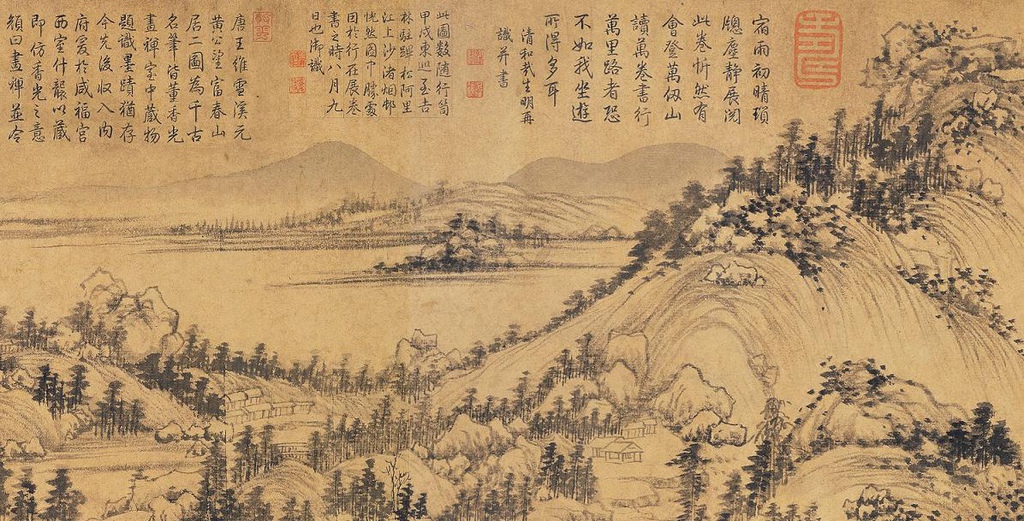 宿雨初晴瑣
牕塵靜展閱
此卷忻然有
會登萬仞山
讀萬卷書行
萬里路者恐
不如我坐遊
所得多耳
清和哉生明再
識并書
此圖數隨行笥
甲戌東巡至吉
林駐蹕松阿里
江上沙渚烟邨
恍然圖中勝處
因於行在展卷
書之時八月九
日也御識
唐王維雪溪元
黃公望富春山
居二圖為千古
名筆皆董香光
畫禪室中藏物
題識墨蹟猶存
今先後收入內
府爰於咸福宮
西室什襲以藏
即仿香光之意
額曰畫禪並令